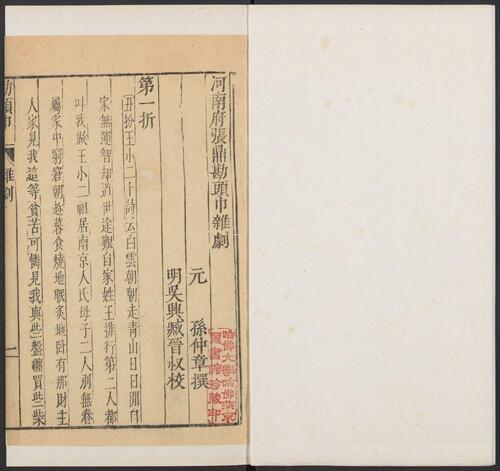 河南府張鼎勘頭巾雜劇
元 孫仲章撰
明吳興臧晉叔校
哈佛大學哈佛燕京
圖書館珍藏印
第一折
丑扮王小二上詩云白雲朝朝走青山日日閒自
家無運智却道世途艱自家姓王排行第二人都
叫我做王小二祖居南京人氏母子二人別無眷
屬家中窮窘朝趁暮食燒地眠炙地臥有那財主
人家見我這等貧苦可憐見我與些盤纏買些柴
勘頭巾 雜劇 一